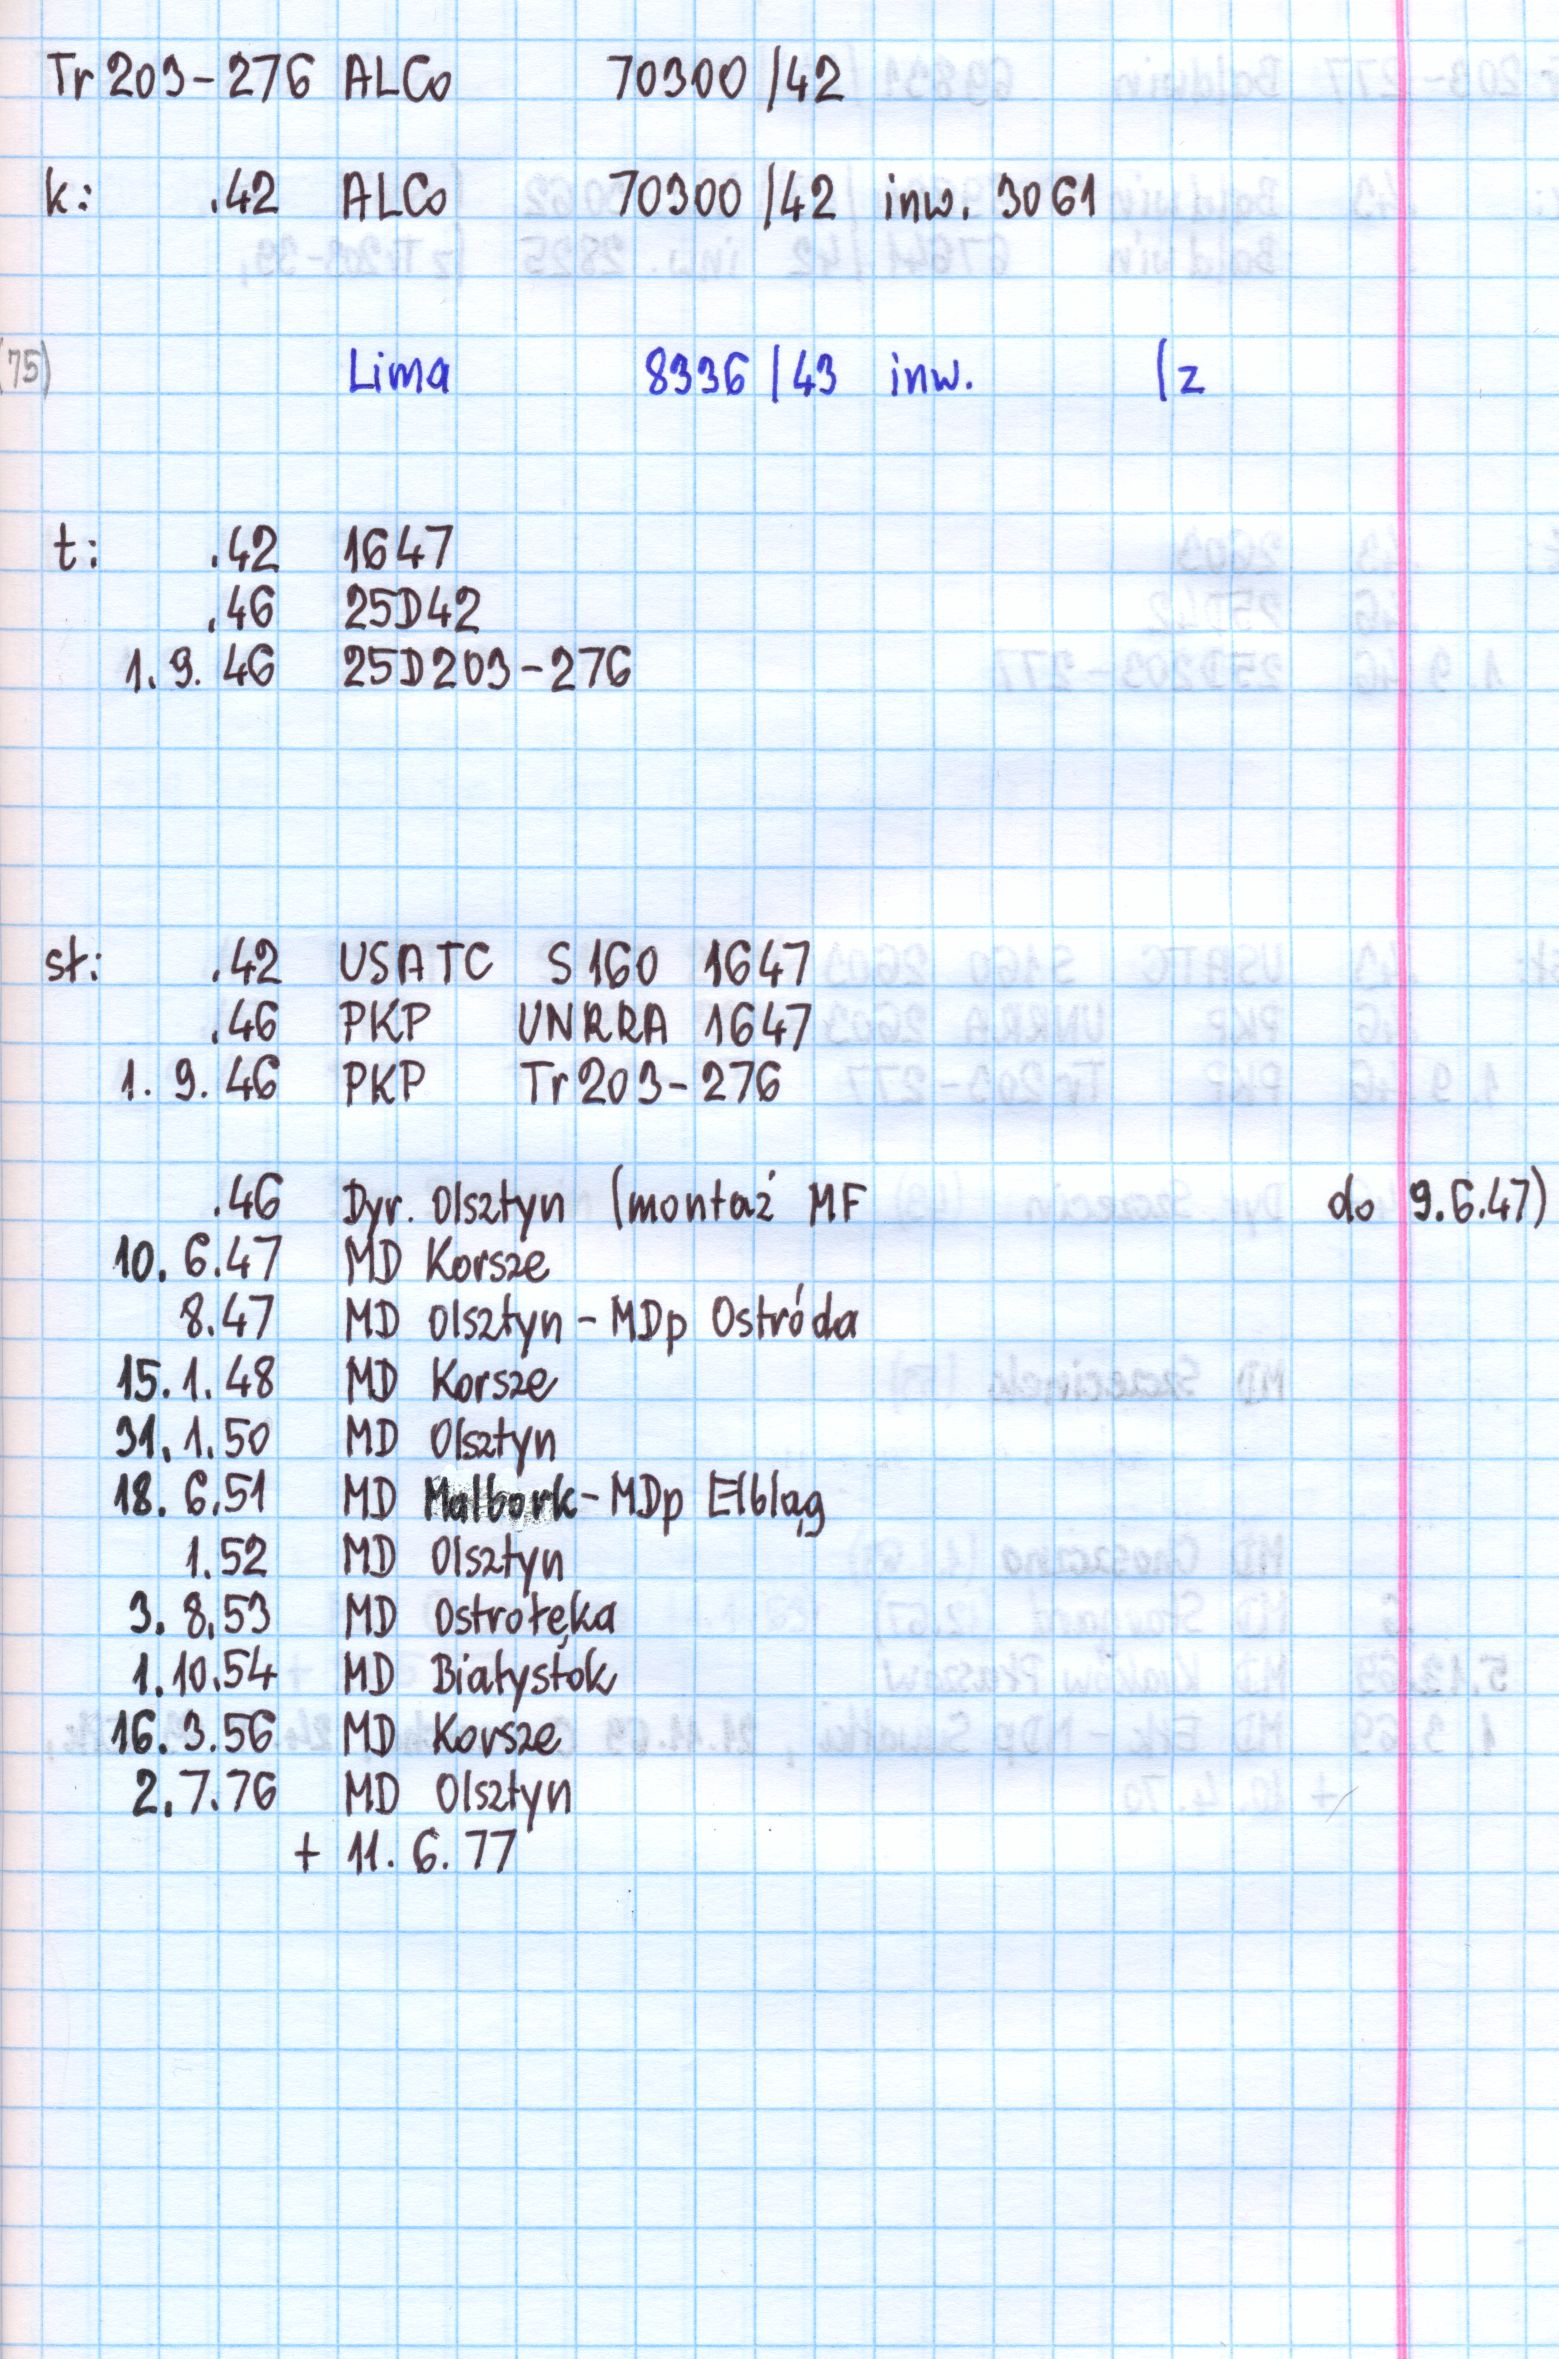 Tr 203-276 ALCo 70300/42
k: .42 ALCo 70300/42 inw. 3061
(75) Lima 8336/43 inw. (z
t: .42 1647
.46 25D42
1.9.46 25D203-276
st: .42 USATC S160 1647
.46 PKP UNRRA 1647
1.9.46 PKP Tr203-276
.46 Dyr. Olsztyn (montaż MF do 9.6.47)
10.6.47 MD Korsze
8.47 MD Olsztyn - MDp Ostróda
15.1.48 MD Korsze
31.1.50 MD Olsztyn
18.6.51 MD Malbork - MDp Elbląg
1.52 MD Olsztyn
3.8.53 MD Ostrołęka
1.10.54 MD Białystok
16.3.56 MD Korsze
2.7.76 MD Olsztyn
+ 11.6.77